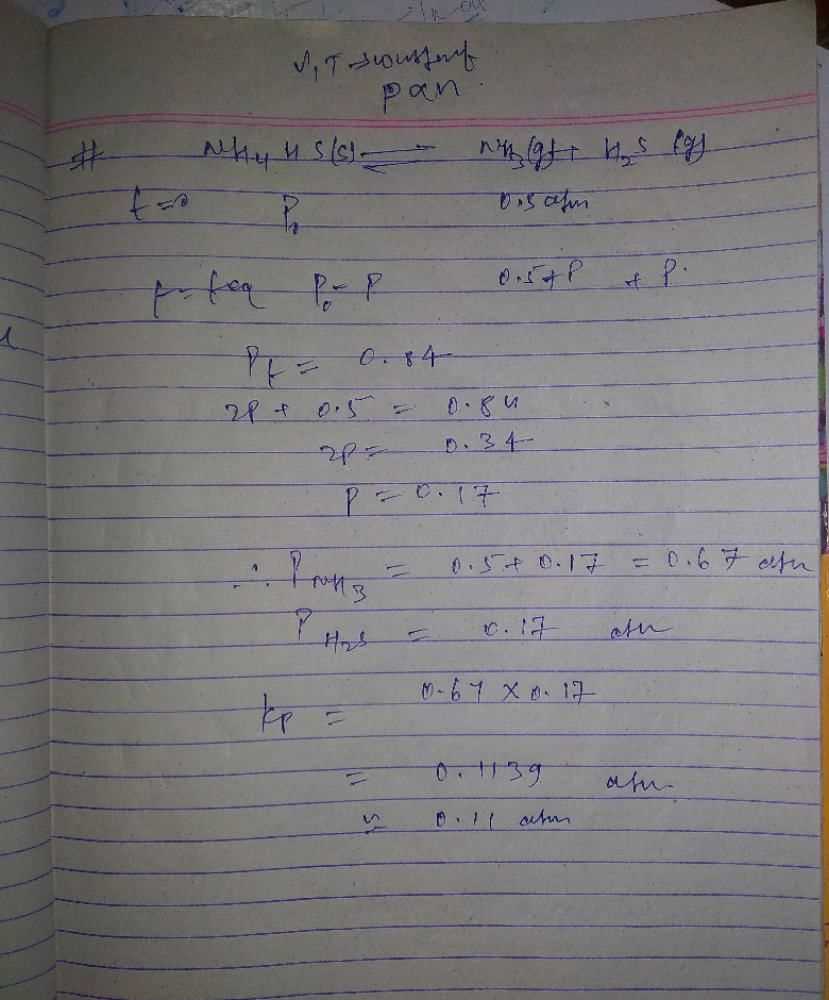 V, T → constant
P ∝ n
# NH₄HS(s) ⇌ NH₃(g) + H₂S (g)
t=0 P₀ 0.5 atm
t = teq P₀ - P 0.5+P + P
Pt = 0.84
2P + 0.5 = 0.84
2P = 0.34
P = 0.17
∴ P NH₃ = 0.5 + 0.17 = 0.67 atm
P H₂S = 0.17 atm
Kp = 0.67 × 0.17
= 0.1139 atm
≈ 0.11 atm